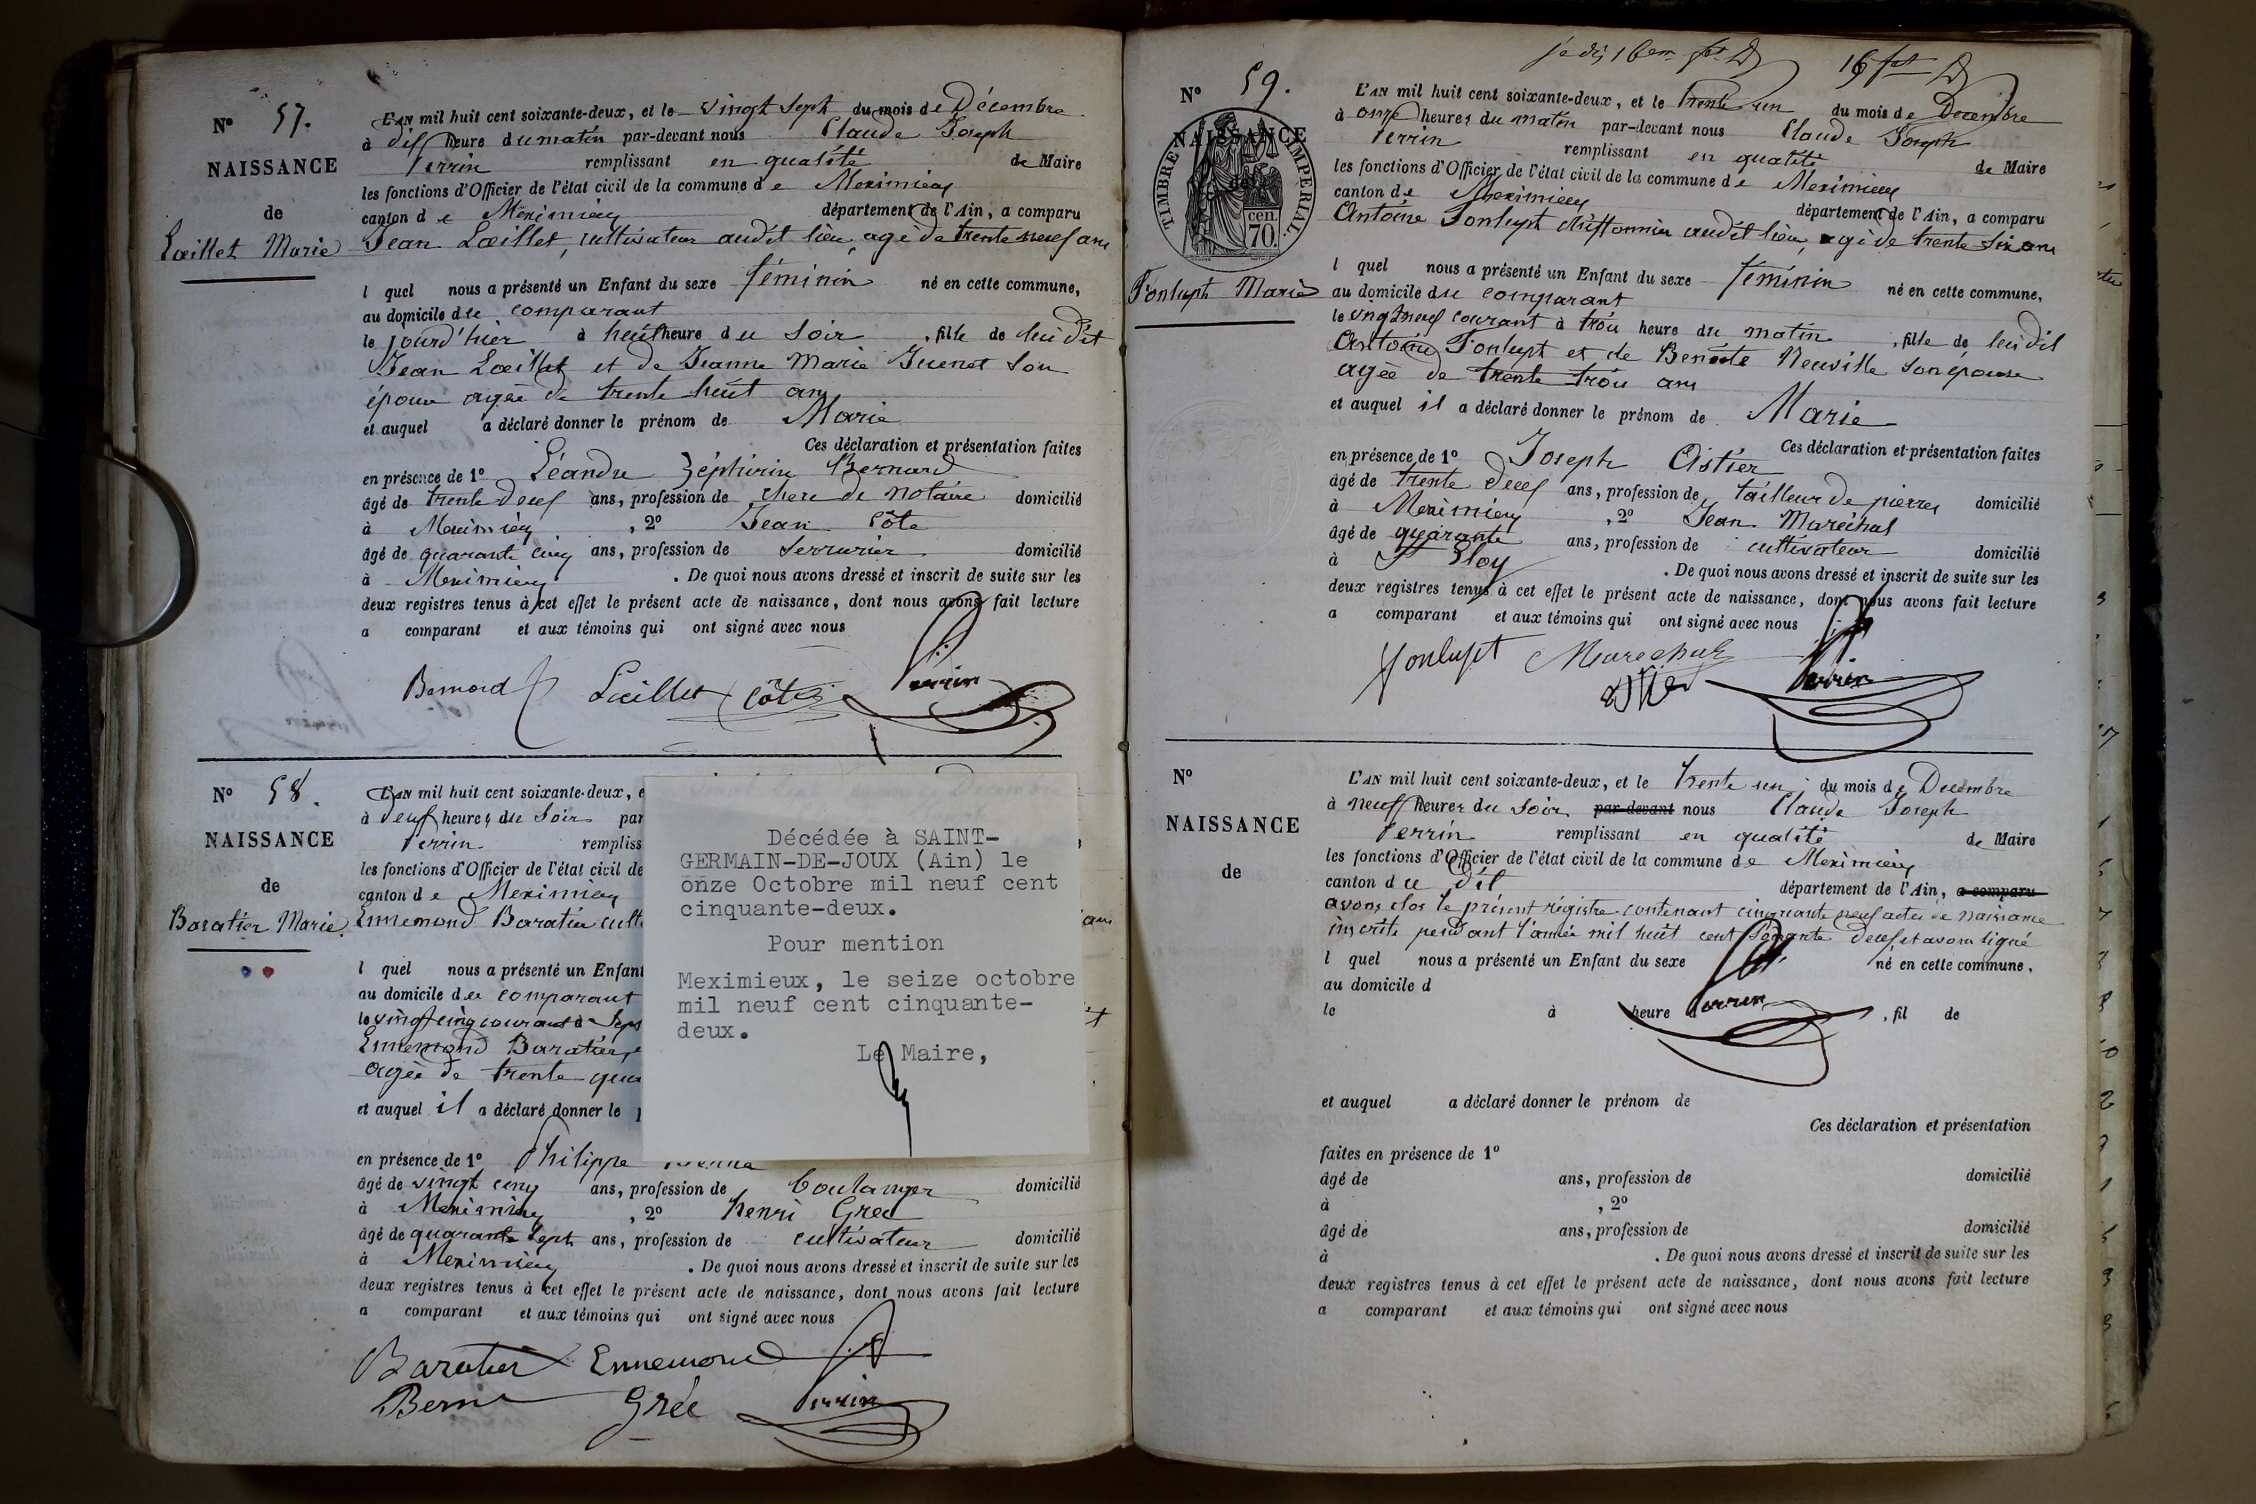 N° 57.
NAISSANCE
de
Lœillet Marie
L'AN mil huit cent soixante-deux, et le vingt sept du mois de Décembre
à dix heure du matin par-devant nous Claude Joseph
Perrin remplissant en qualité de Maire
les fonctions d'Officier de l'état civil de la commune de Meximieux
canton de Meximieux département de l'Ain, a comparu
Jean Lœillet, cultivateur audit lieu, agé de trente neuf ans
l quel nous a présenté un Enfant du sexe féminin né en cette commune,
au domicile du comparant
le jourd'hier à huit heure du soir, fille de lui dit
Jean Lœillet et de Jeanne Marie Guenet son
épouse agée de trente huit ans
et auquel a déclaré donner le prénom de Marie
Ces déclaration et présentation faites
en présence de 1° Léandre Zéphirin Bernard
âgé de trente deux ans, profession de clerc de notaire domicilié
à Meximieux, 2° Jean Côte
âgé de quarante cinq ans, profession de serrurier domicilié
à Meximieux. De quoi nous avons dressé et inscrit de suite sur les
deux registres tenus à cet effet le présent acte de naissance, dont nous avons fait lecture
a comparant et aux témoins qui ont signé avec nous
Bernard Lœillet Côte Perrin
N° 58.
NAISSANCE
de
Baratier Marie
L'AN mil huit cent soixante-deux, e
à deux heures du soir par
Perrin rempliss
les fonctions d'Officier de l'état civil de
canton de Meximieux
Ennemond Baratier cult
ans
l quel nous a présenté un Enfant
au domicile du comparant
le vingt cinq courant à sept
Ennemond Baratier, e
agée de trente qua
et auquel il a déclaré donner le p
Décédée à SAINT-
GERMAIN-DE-JOUX (Ain) le
onze Octobre mil neuf cent
cinquante-deux.
Pour mention
Meximieux, le seize octobre
mil neuf cent cinquante-
deux.
Le Maire,
en présence de 1° Philippe Berna
âgé de vingt cinq ans, profession de boulanger domicilié
à Meximieux, 2° henri Grée
âgé de quarante sept ans, profession de cultivateur domicilié
à Meximieux. De quoi nous avons dressé et inscrit de suite sur les
deux registres tenus à cet effet le présent acte de naissance, dont nous avons fait lecture
a comparant et aux témoins qui ont signé avec nous
Baratier Ennemond
Berna Grée Perrin
N° 59.
NAISSANCE
de
TIMBRE IMPERIAL
70 cen.
Fonlupt Marie
L'AN mil huit cent soixante-deux, et le trente un du mois de Decembre
à onze heures du matin par-devant nous Claude Joseph
Perrin remplissant en qualité de Maire
les fonctions d'Officier de l'état civil de la commune de Meximieux
canton de Meximieux département de l'Ain, a comparu
Antoine Fonlupt chiffonnier audit lieu, agé de trente six ans
l quel nous a présenté un Enfant du sexe féminin né en cette commune,
au domicile du comparant
le vingt neuf courant à trois heure du matin, fille de lui dit
Antoine Fonlupt et de Benoite Neuville son épouse
agée de trente trois ans
et auquel il a déclaré donner le prénom de Marie
Ces déclaration et présentation faites
en présence de 1° Joseph Astier
âgé de trente deux ans, profession de tailleur de pierres domicilié
à Meximieux, 2° Jean Maréchal
âgé de quarante ans, profession de cultivateur domicilié
à St Eloy. De quoi nous avons dressé et inscrit de suite sur les
deux registres tenus à cet effet le présent acte de naissance, dont nous avons fait lecture
a comparant et aux témoins qui ont signé avec nous
Fonlupt Marechal
astier Perrin
N°
NAISSANCE
de
L'AN mil huit cent soixante-deux, et le trente un du mois de Decembre
à neuf heures du soir par-devant nous Claude Joseph
Perrin remplissant en qualité de Maire
les fonctions d'Officier de l'état civil de la commune de Meximieux
canton du dit département de l'Ain, a comparu
avons clos le présent régistre contenant cinquante neuf actes de naissance
inscrits pendant l'année mil huit cent soixante deux et avons signé
l quel nous a présenté un Enfant du sexe né en cette commune,
au domicile d
le à heure Perrin, fil de
et auquel a déclaré donner le prénom de
Ces déclaration et présentation
faites en présence de 1°
âgé de ans, profession de domicilié
à , 2°
âgé de ans, profession de domicilié
à . De quoi nous avons dressé et inscrit de suite sur les
deux registres tenus à cet effet le présent acte de naissance, dont nous avons fait lecture
a comparant et aux témoins qui ont signé avec nous